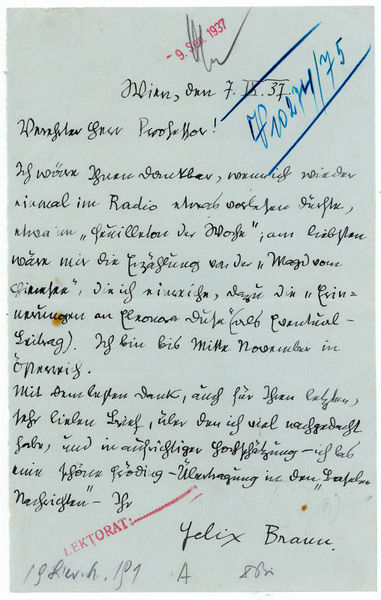 - 9. Sep. 1937
Wien, den 7. IX. 37.
Verehrter Herr Professor!
Ich wäre Ihnen dankbar, wenn ich wieder
einmal im Radio etwas vorlesen dürfte,
etwa im „Feuilleton der Woche"; am liebsten
wäre mir die Erzählung von der „Magd vom
die ich einreiche, dazu die „Erin-
nerungen an Eleonora Duse" (als Eventual-
Beitrag). Ich bin bis Mitte November in
Österreich.
Mit dem besten Dank, auch für Ihren letzten,
sehr lieben Brief, über den ich viel nachgedacht
habe, und in aufrichtiger Hochschätzung – ich las
eine schöne Fröding-Übertragung in den „Basler
Nachrichten" – Ihr
LEKTORAT:
Felix Braun.
A